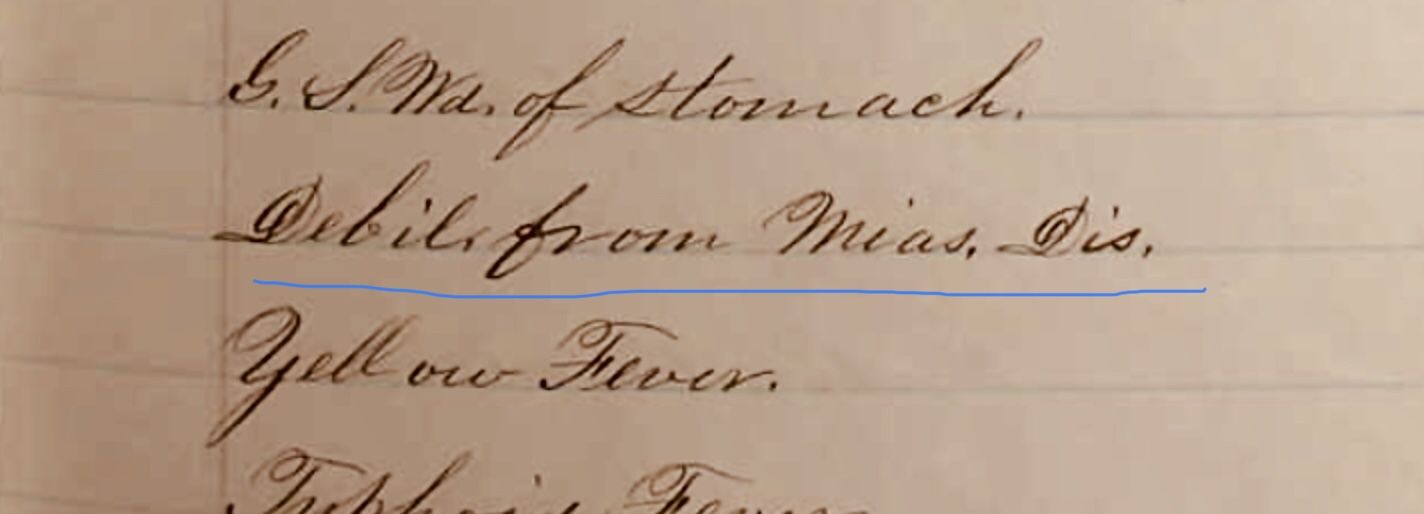 G. S. Wd. of stomach.
Debil. from Mias. Dis.
Yellow Fever.
Fever